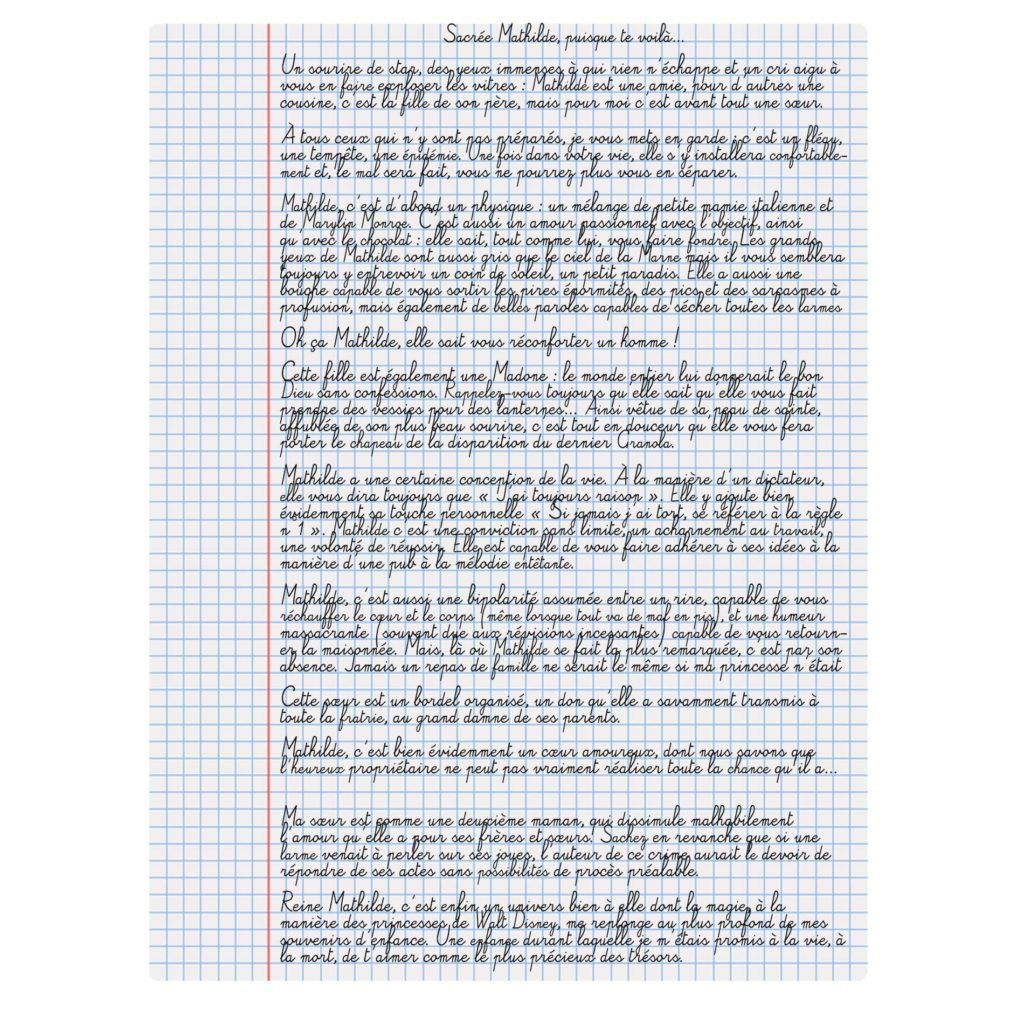 Sacrée Mathilde, puisque te voilà...
Un sourire de star, des yeux immenses à qui rien n'échappe et un cri aigu à
vous en faire exploser les vitres : Mathilde est une amie, pour d'autres une
cousine, c'est la fille de son père, mais pour moi c'est avant tout une sœur.
À tous ceux qui n'y sont pas préparés, je vous mets en garde : c'est un fléau,
une tempête, une épidémie. Une fois dans votre vie, elle s'y installera confortable-
ment et, le mal sera fait, vous ne pourrez plus vous en séparer.
Mathilde, c'est d'abord un physique : un mélange de petite mamie italienne et
de Marylin Monroe. C'est aussi un amour passionnel avec l'objectif, ainsi
qu'avec le chocolat : elle sait, tout comme lui, vous faire fondre. Les grands
yeux de Mathilde sont aussi gris que le ciel de la Marne mais il vous semblera
toujours y entrevoir un coin de soleil, un petit paradis. Elle a aussi une
bouche capable de vous sortir les pires énormités, des pics et des sarcasmes à
profusion, mais également de belles paroles capables de sécher toutes les larmes
Oh ça Mathilde, elle sait vous réconforter un homme !
Cette fille est également une Madone : le monde entier lui donnerait le bon
Dieu sans confessions. Rappelez-vous toujours qu'elle sait qu'elle vous fait
prendre des vessies pour des lanternes... Ainsi vêtue de sa peau de sainte,
affublée de son plus beau sourire, c'est tout en douceur qu'elle vous fera
porter le chapeau de la disparition du dernier Granola.
Mathilde a une certaine conception de la vie. À la manière d'un dictateur,
elle vous dira toujours que « J'ai toujours raison ». Elle y ajoute bien
évidemment sa touche personnelle « Si jamais j'ai tort, se référer à la règle
n°1 ». Mathilde c'est une conviction sans limite, un acharnement au travail,
une volonté de réussir. Elle est capable de vous faire adhérer à ses idées à la
manière d'une pub à la mélodie entêtante.
Mathilde, c'est aussi une bipolarité assumée entre un rire, capable de vous
réchauffer le cœur et le corps (même lorsque tout va de mal en pis), et une humeur
massacrante (souvent due aux révisions incessantes) capable de vous retourn-
er la maisonnée. Mais, là où Mathilde se fait la plus remarquée, c'est par son
absence. Jamais un repas de famille ne serait le même si ma princesse n'était
Cette sœur est un bordel organisé, un don qu'elle a savamment transmis à
toute la fratrie, au grand damne de ses parents.
Mathilde, c'est bien évidemment un cœur amoureux, dont nous savons que
l'heureux propriétaire ne peut pas vraiment réaliser toute la chance qu'il a...
Ma sœur est comme une deuxième maman, qui dissimule malhabilement
l'amour qu'elle a pour ses frères et sœurs. Sachez en revanche que si une
larme venait à perler sur ses joues, l'auteur de ce crime aurait le devoir de
répondre de ses actes sans possibilités de procès préalable.
Reine Mathilde, c'est enfin un univers bien à elle dont la magie, à la
manière des princesses de Walt Disney, me replonge au plus profond de mes
souvenirs d'enfance. Une enfance durant laquelle je m'étais promis à la vie, à
la mort, de t'aimer comme le plus précieux des trésors.